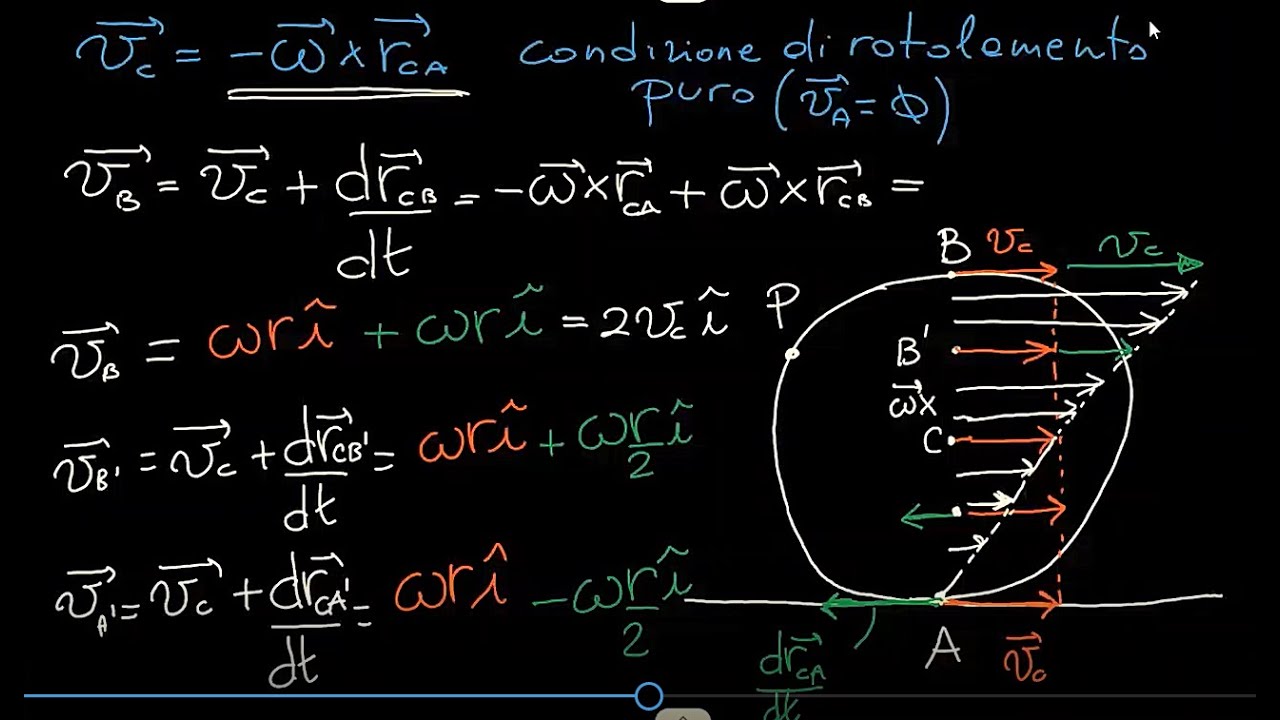 v⃗_C = −ω⃗ × r⃗_CA condizione di rotolamento
puro (v⃗_A = ∅)
v⃗_B = v⃗_C + dr⃗_CB/dt = −ω⃗ × r⃗_CA + ω⃗ × r⃗_CB =
v⃗_B = ωr î + ωr î = 2v_C î
v⃗_B' = v⃗_C + dr⃗_CB'/dt = ωr î + ωr/2 î
v⃗_A' = v⃗_C + dr⃗_CA'/dt = ωr î − ωr/2 î
B v_C v_C
P
B'
ω⃗ ×
C
A v⃗_C
dr⃗_CA/dt